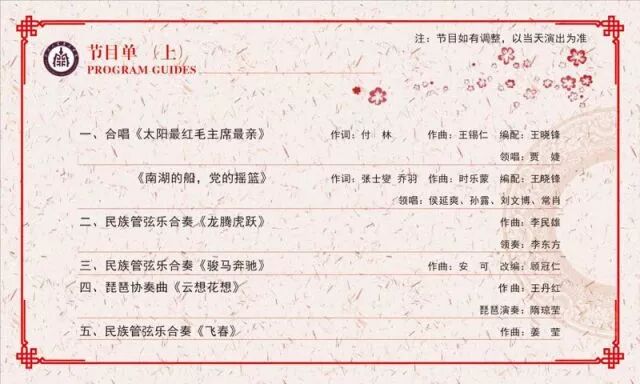 节目单（上）
PROGRAM GUIDES
注：节目如有调整，以当天演出为准
一、合唱《太阳最红毛主席最亲》 作词：付 林 作曲：王锡仁 编配：王晓锋
领唱：贾 婕
《南湖的船，党的摇篮》 作词：张士燮 乔羽 作曲：时乐蒙 编配：王晓锋
领唱：侯延爽、孙露、刘文博、常肖
二、民族管弦乐合奏《龙腾虎跃》 作曲：李民雄
领奏：李东方
三、民族管弦乐合奏《骏马奔驰》 作曲：安 可 改编：顾冠仁
四、琵琶协奏曲《云想花想》 作曲：王丹红
琵琶演奏：隋琼莹
五、民族管弦乐合奏《飞春》 作曲：姜 莹